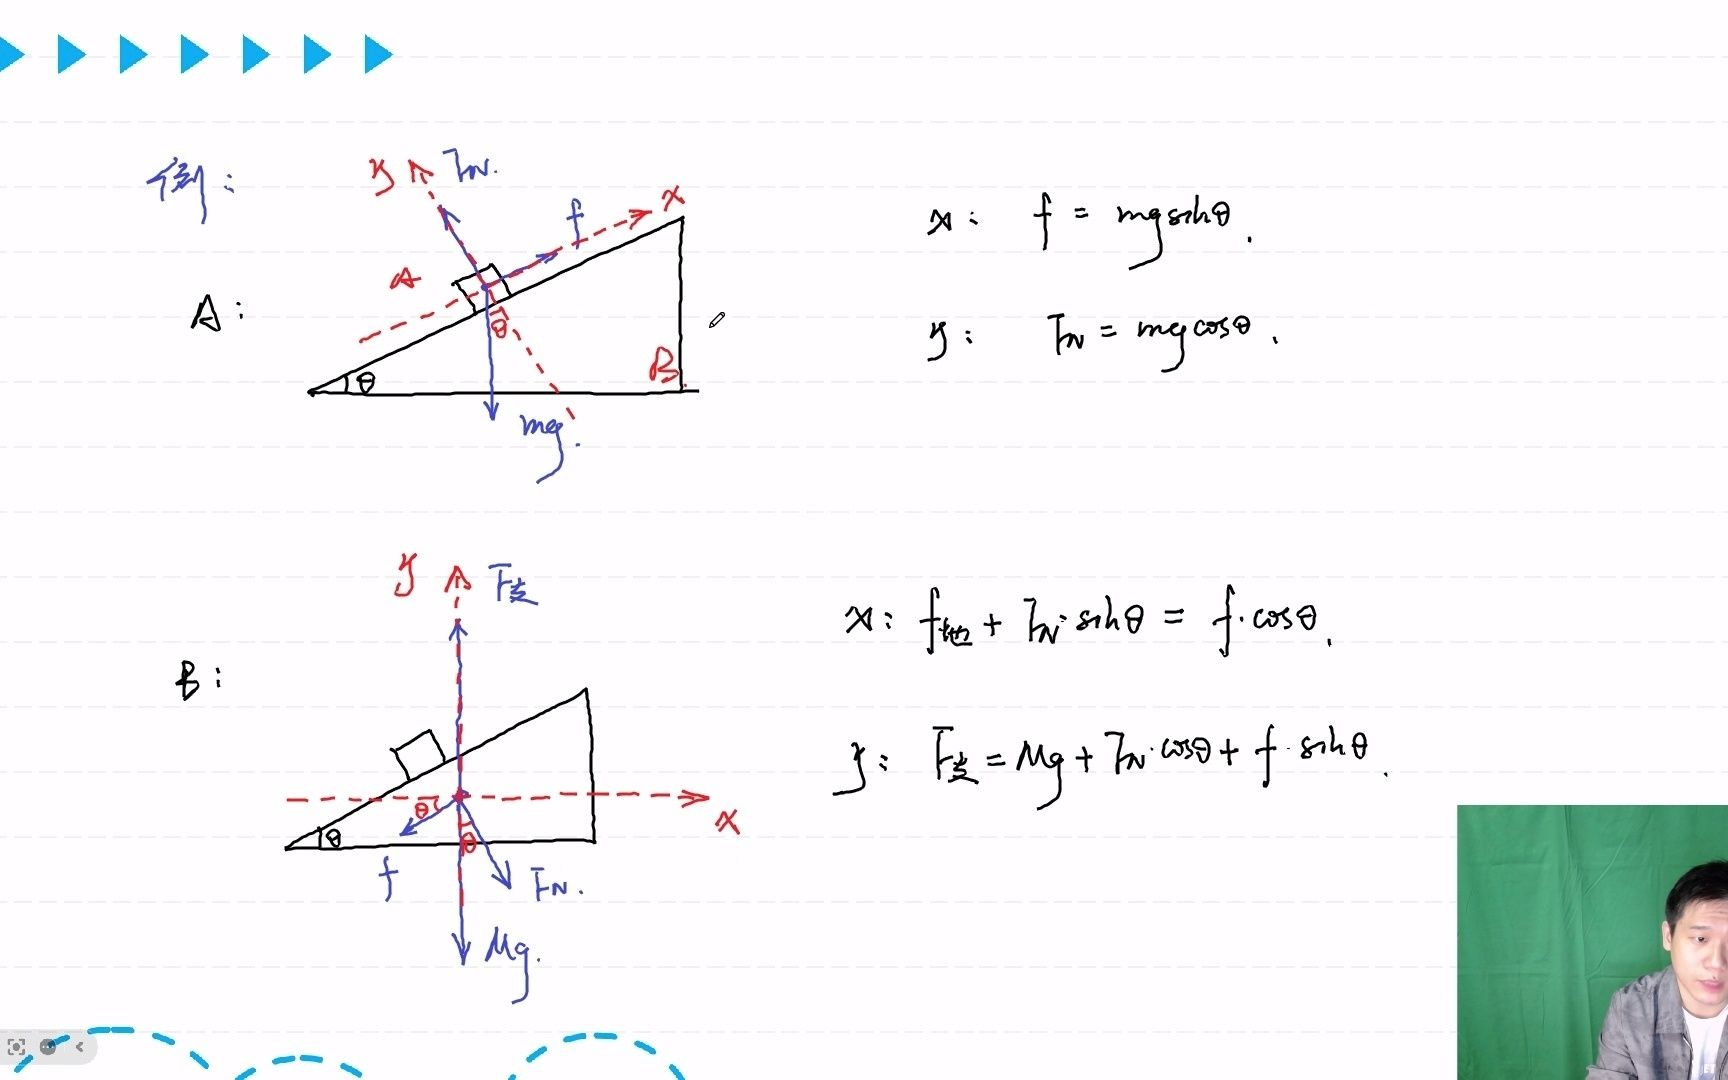 例：
y F_N.
f
x
A
A：
θ
θ
B
mg.
x： f = mg sinθ.
y： F_N = mg cosθ.
y F支
B：
θ
θ
θ
x
f
F_N.
Mg.
x： f地 + F_N·sinθ = f·cosθ.
y： F支 = Mg + F_N·cosθ + f·sinθ.